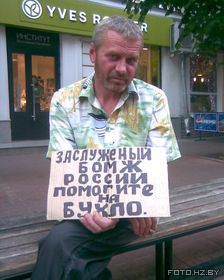 YVES RO
ИНСТИТУТ
ЗАСЛУЖЕНЫЙ
БОМЖ
РОССИИ
ПОМОГИТЕ
НА
БУХЛО.
FOTO.HZ.BY